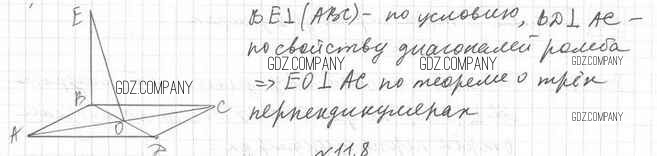 E
BE⊥(ABC) - по условию, BD⊥AC -
по свойству диагоналей ромба
GDZ.COMPANY
GDZ.COMPANY
GDZ.COMPANY
⇒ EO⊥AC по теореме о трёх
B
C
перпендикулярах
GDZ.COMPANY
A
O
D
№11.8